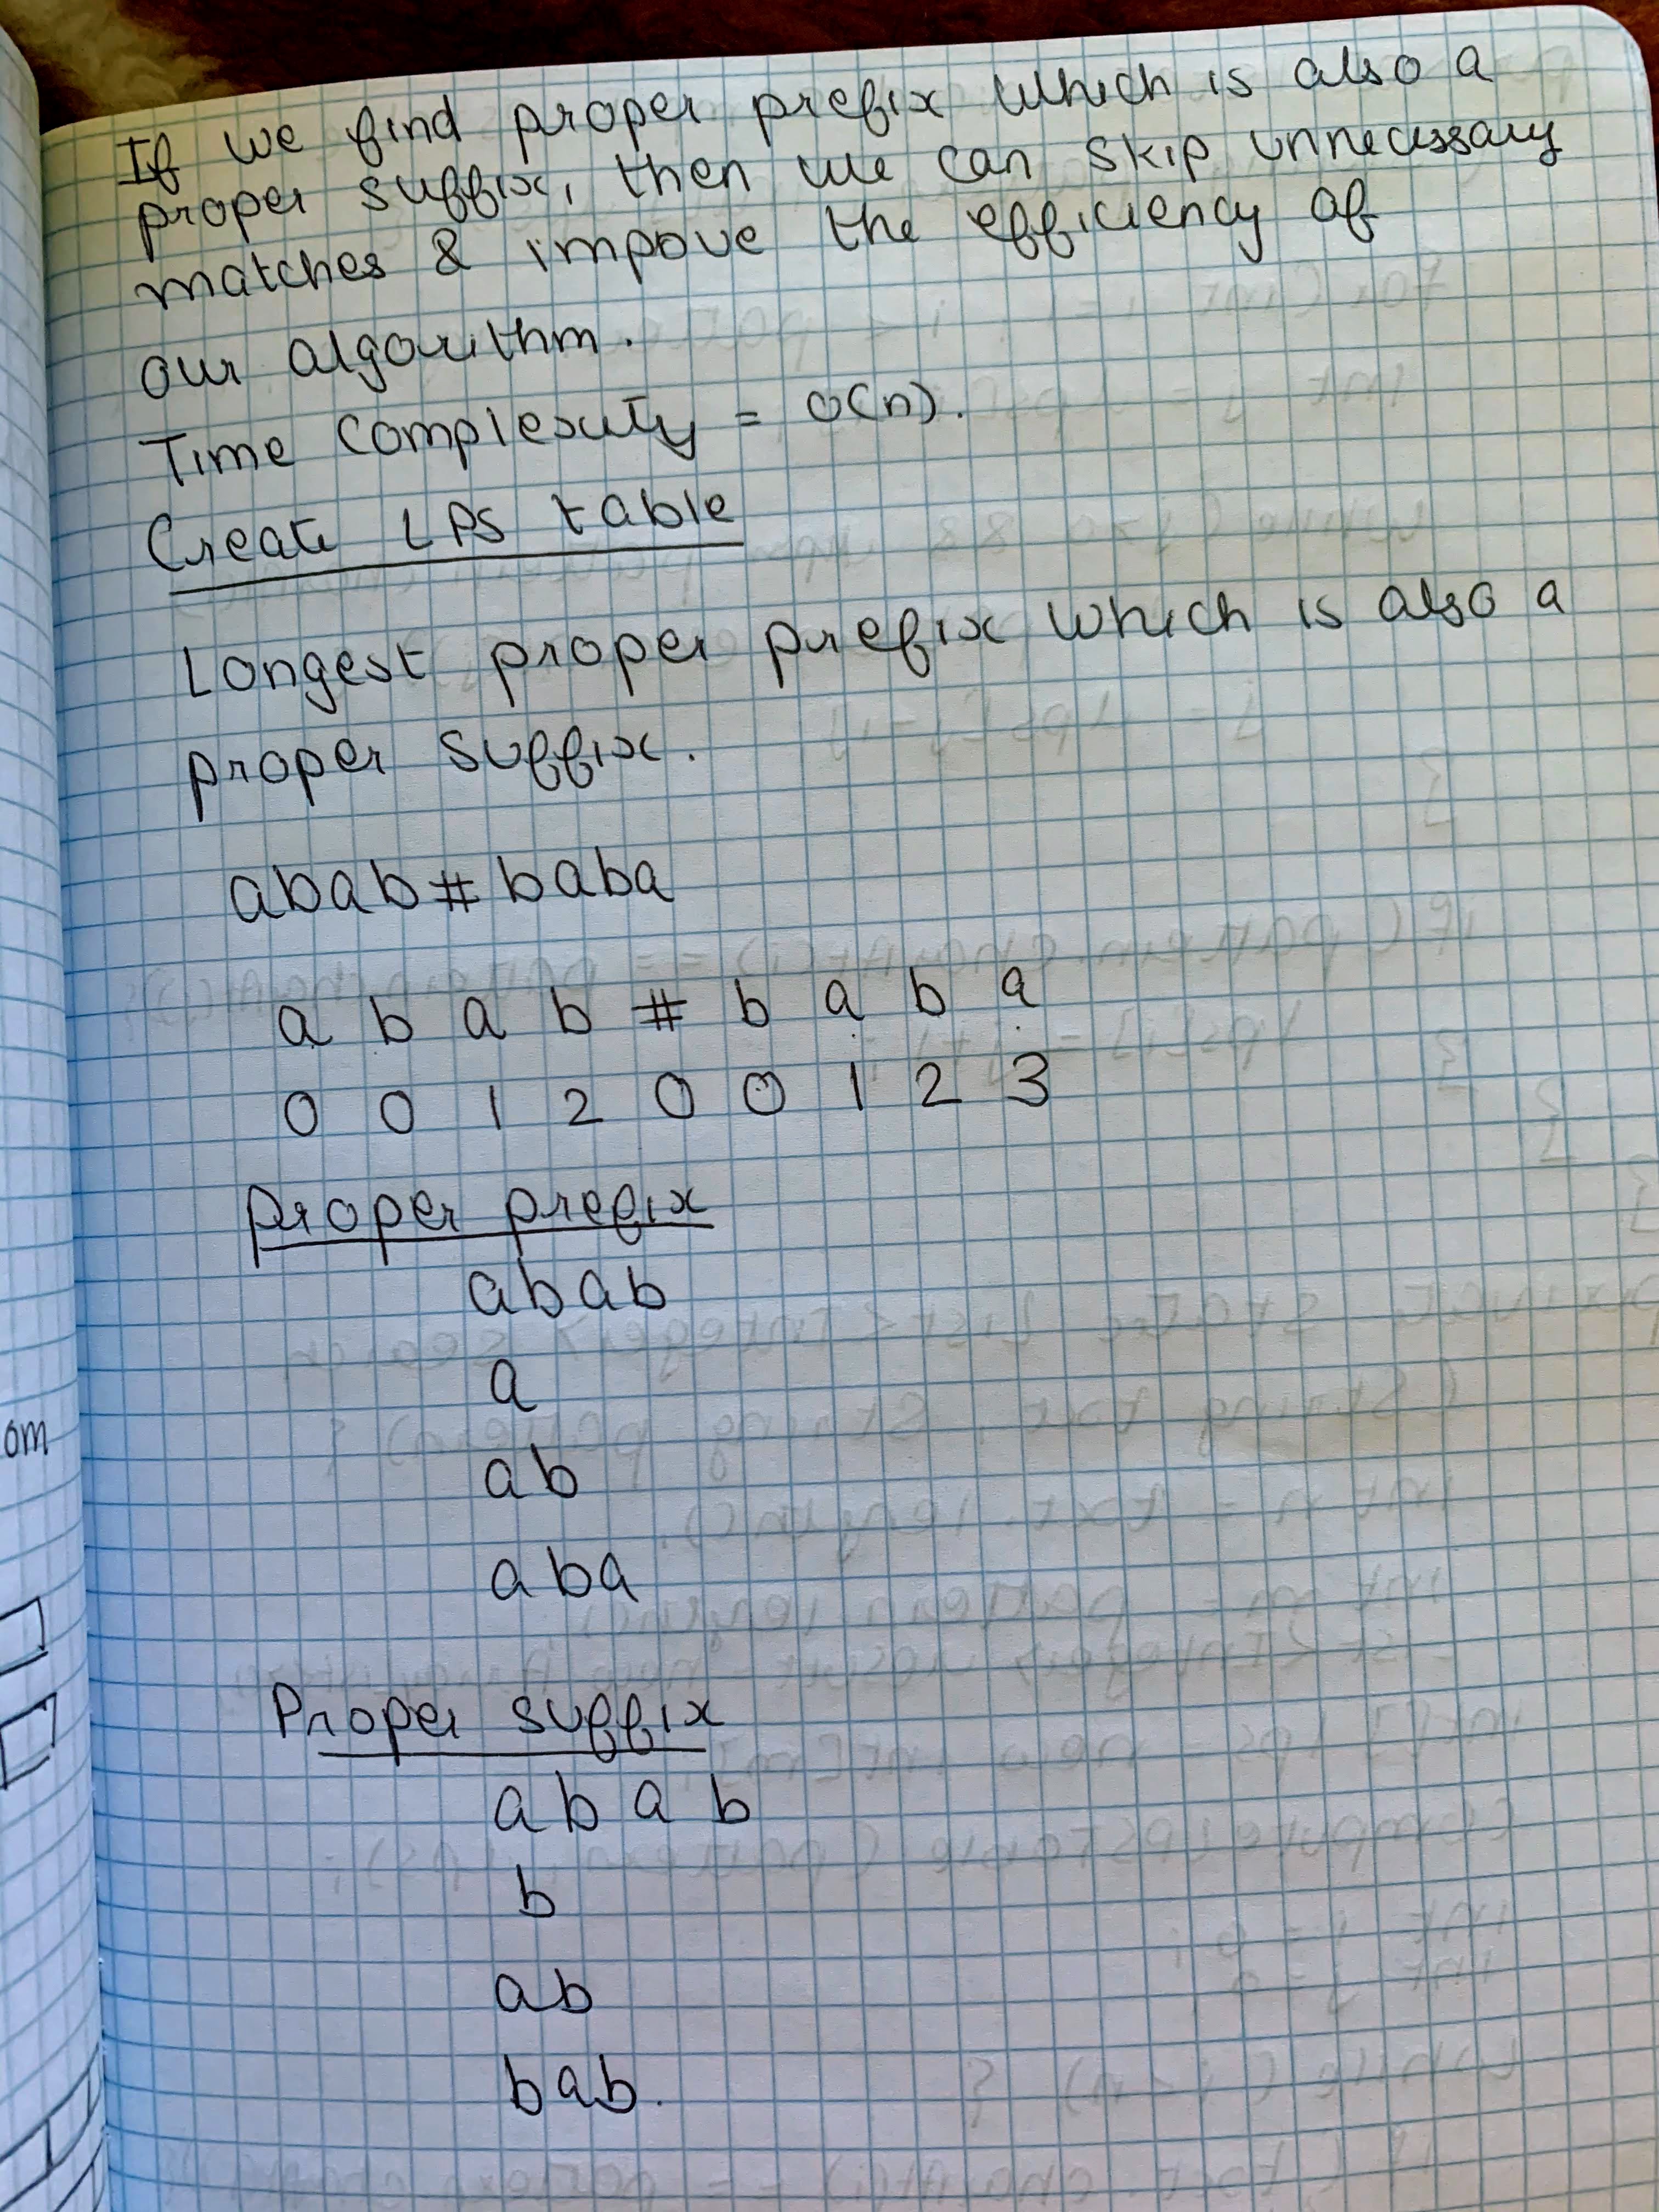 If we find proper prefix which is also a
proper suffix, then we can skip unnecessary
matches & impove the efficiency of
our algorithm.
Time complexity = O(n).
Create LPS table
Longest proper prefix which is also a
proper suffix.
abab#baba
a b a b # b a b a
0 0 1 2 0 0 1 2 3
proper prefix
abab
a
ab
aba
om
Proper suffix
a b a b
b
ab
bab.